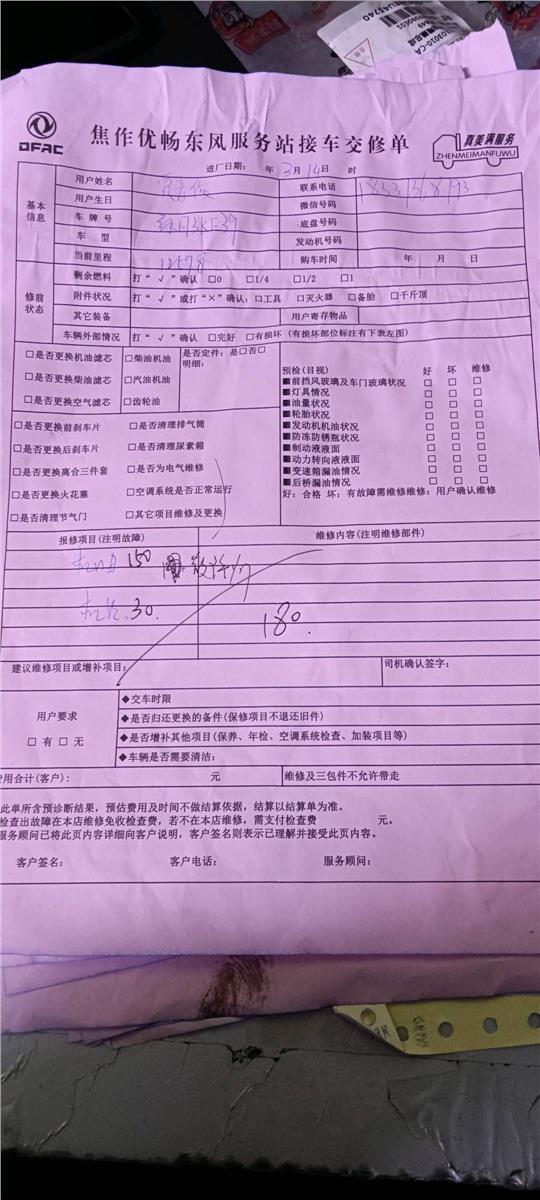 DFAC
焦作优畅东风服务站接车交修单
真美满服务
ZHENMEIMANFUWU
进厂日期: 年 3月 14日 时
基本信息
用户姓名
联系电话
用户生日
微信号码
车牌号
底盘号码
车 型
发动机号码
当前里程
购车时间 年 月 日
修前状态
剩余燃料 打“√”确认 □0 □1/4 □1/2 □1
附件状况 打“√”或打“×”确认: □工具 □灭火器 □备胎 □千斤顶
其它装备 用户寄存物品
车辆外部情况 打“√”确认 □完好 □有损坏(有损坏部位标注有下表左图)
□是否更换机油滤芯 □柴油机油 是否定件: 是□否□
明细:
□是否更换柴油滤芯 □汽油机油
□是否更换空气滤芯 □齿轮油
预检(目视) 好 坏 维修
■前挡风玻璃及车门玻璃状况 □ □ □
■灯具情况 □ □ □
■油量状况 □ □ □
■轮胎状况 □ □ □
■发动机机油状况 □ □ □
■防冻防锈瓶状况 □ □ □
■制动液液面 □ □ □
■动力转向液液面 □ □ □
■变速箱漏油情况 □ □ □
■后桥漏油情况 □ □ □
好: 合格 坏: 有故障需维修维修: 用户确认维修
□是否更换前刹车片 □是否清理排气筒
□是否更换后刹车片 □是否清理尿素箱
□是否更换离合三件套 □是否为电气维修
□是否更换火花塞 □空调系统是否正常运行
□是否清理节气门 □其它项目维修及更换
报修项目(注明故障) 维修内容(注明维修部件)
150
30.
180.
建议维修项目或增补项目: 司机确认签字:
用户要求
□ 有 □ 无
◆交车时限
◆是否归还更换的备件(保修项目不退还旧件)
◆是否增补其他项目(保养、年检、空调系统检查、加装项目等)
◆车辆是否需要清洁:
用合计(客户): 元 维修及三包件不允许带走
此单所含预诊断结果，预估费用及时间不做结算依据，结算以结算单为准。
检查出故障在本店维修免收检查费，若不在本店维修，需支付检查费 元。
服务顾问已将此页内容详细向客户说明，客户签名则表示已理解并接受此页内容。
客户签名: 客户电话: 服务顾问: